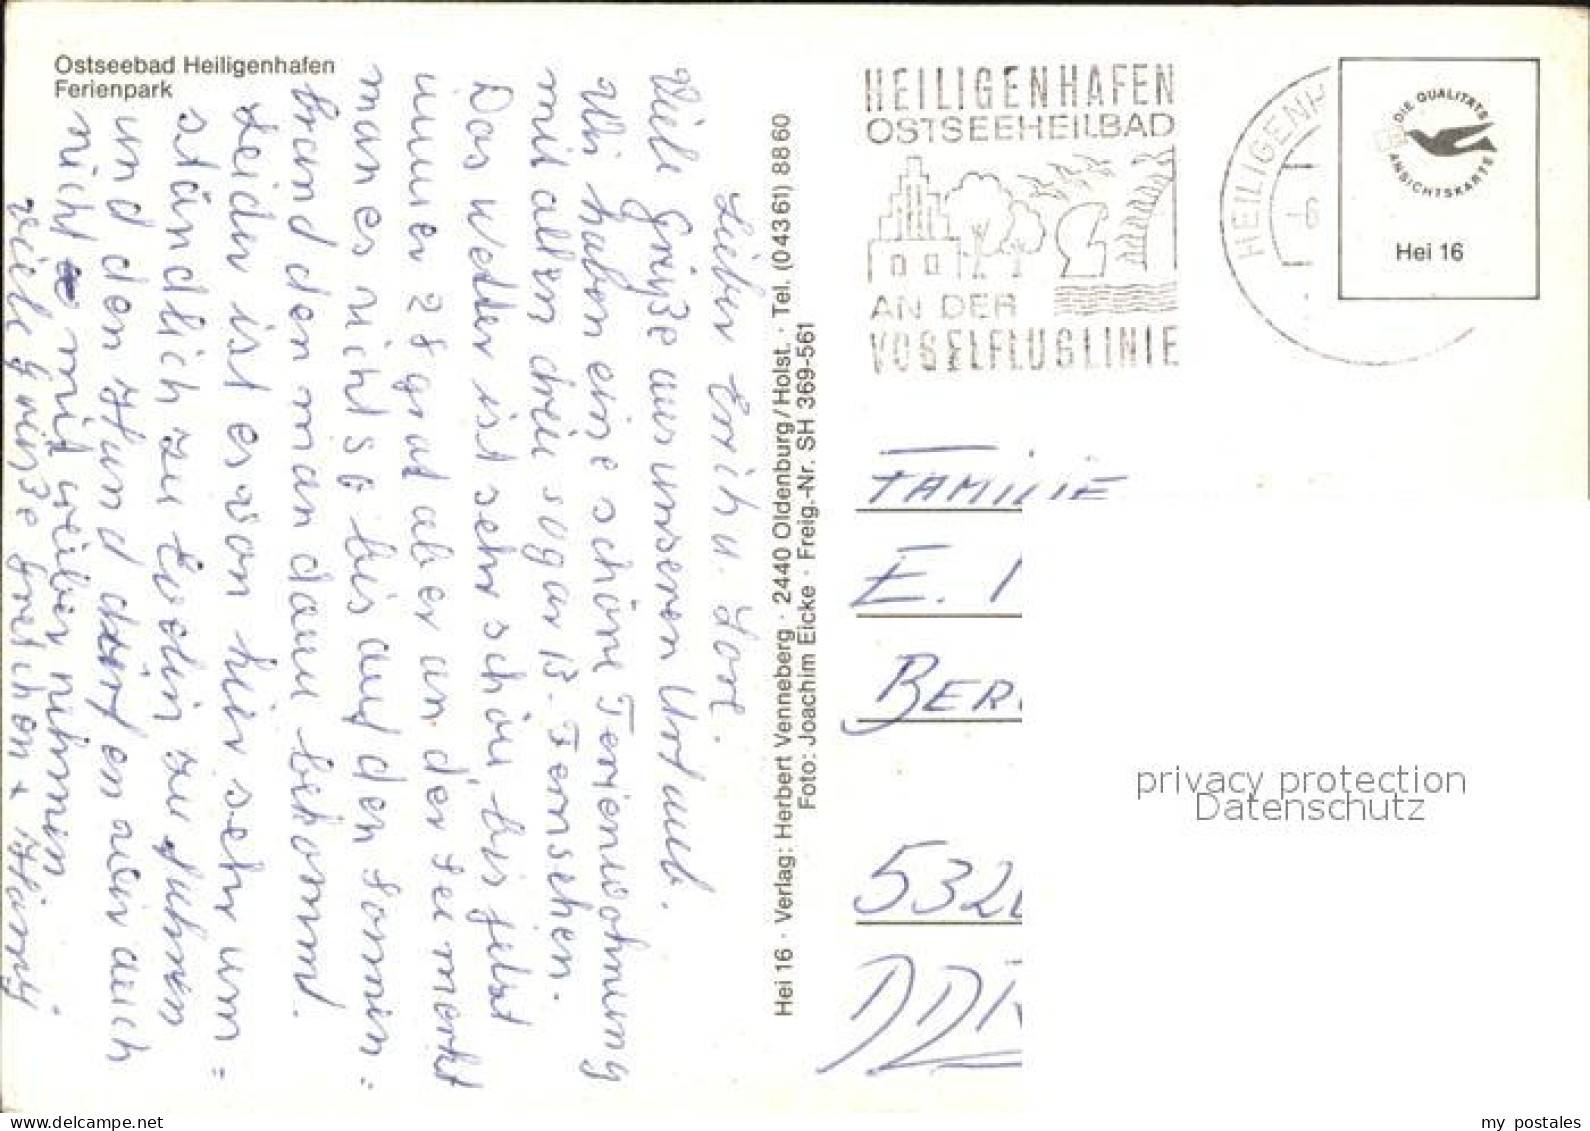 Ostseebad Heiligenhafen
Ferienpark
Lieber Erich u. Lore.
Viele Grüße aus unseren Urlaub.
Wir haben eine schöne Ferienwohnung
mit allem dreu sogar B. Fernsehen.
Das Wetter ist sehr schön bis jetzt
immer 28 grad aber an der See merkt
man es nicht so bis auf den Sonnen=
brand den man dann bekommt.
Leider ist es von hier sehr um=
ständlich zu Euch zu fahren
und den Hund dürfen wir auch
nicht mit rüber nehmen.
Viele Grüße Gretchen + Hämy
Hei 16 · Verlag: Herbert Venneberg · 2440 Oldenburg/Holst. · Tel. (04361) 8860
Foto: Joachim Eicke · Freig.-Nr. SH 369-561
HEILIGENHAFEN
OSTSEEHEILBAD
AN DER
VOGELFLUGLINIE
HEILIGENH
-6
DIE QUALITÄTS
ANSICHTSKARTE
Hei 16
FAMILIE
E.
BER
532
DD
privacy protection
Datenschutz
my postales